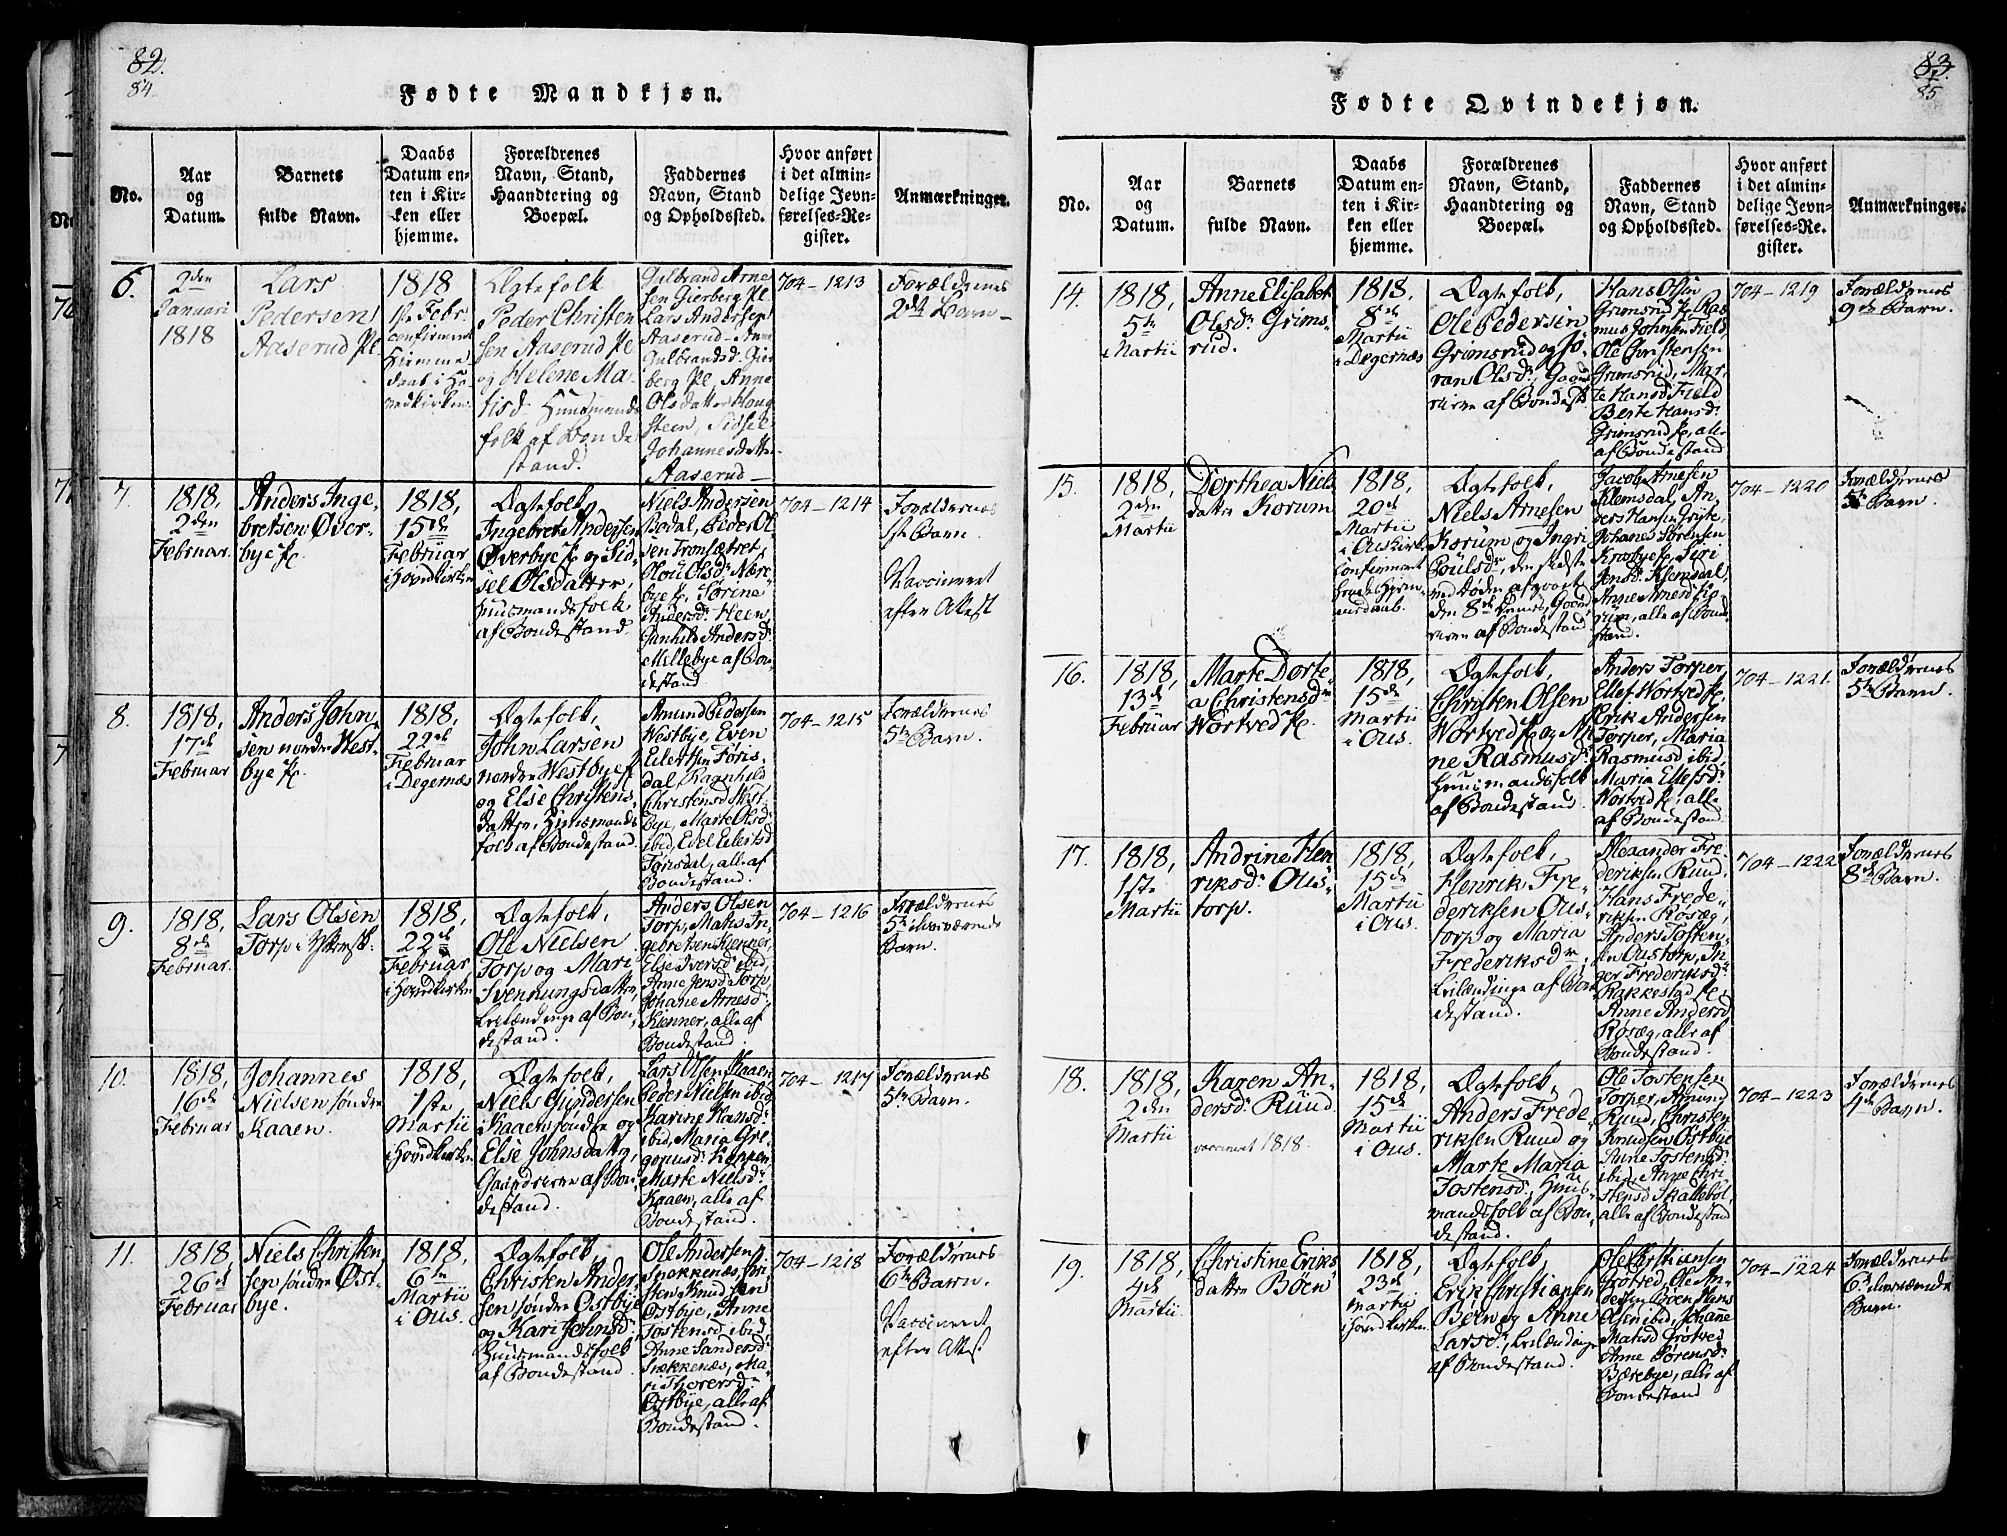 82.
84.
Fødte Mandkjøn.
No.
Aar
og
Datum.
Barnets
fulde Navn.
Daabs
Datum en-
ten i Kir-
ken eller
hjemme.
Forældrenes
Navn, Stand,
Haandtering og
Boepæl.
Faddernes
Navn, Stand
og Opholdssted.
Hvor anført
i det almin-
delige Jevn-
førelses-Re-
gister.
Anmærkninger.
6.
2den
Januari
1818
Lars
Pedersen
Aaserud Pl
1818
1ste Febr
confirmeret
Hjemme
daab i Ho-
vedkirken
Ægtefolk
Peder Christen
sen Aaserud Pl
og Helene Ma-
tisd: Huusmands
folk af Bonde
stand.
Gulbrand Arne
sen Gierberg Pl.
Lars Andersen
Aaserud - Anne
Gulbrandsd: Gier
berg Pl, Anne
Olsdatter Houg
steen, Sidsel
Johannesdatter
Aaserud -
704 - 1213
Forældrenes
2det Barn -
7.
1818,
2den
Februar.
Anders Inge-
bretsen Øver-
bye Pl.
1818,
15de
Februar
i Hovedkirken
Ægtefolk,
Ingebret Andersen
Øverbye Pl og Sid-
sel Olsdatter,
Huusmandsfolk
af Bondestand.
Niels Andersen
Bødal, Peder Ol-
sen Tronsætret,
Olou Olsd: Nære-
bye Pl, Sørine
Andersd: Heen,
Gunhild Andersd:
Mellebye af Bon-
destand
704 - 1214
Forældrenes
1ste Barn.
Vaccineret
efter Attest
8.
1818,
17de
Februar
Anders John-
sen nordre West-
bye Pl.
1818,
22de
Februar
i Degernæs
Ægtefolk,
John Larsen
nordre Westbye Pl
og Else Christens-
datter, Huusmands
folk af Bondestand.
Amund Pedersen
Westbye, Even
Eilertsen Føris-
dal, Ragnhild
Christensd: West-
bye, Marte Olsd:
ibid, Edel Eilertsd:
Førisdal, alle af
Bondestand.
704 - 1215
Forældrenes
5te Barn.
9.
1818,
8de
Februar.
Lars Olsen
Torp i
1818,
22de
Februar
i Hovedkirken
Ægtefolk,
Ole Nielsen
Torp og Mari
Svennungsdatter,
Leilændinge af Bon-
destand.
Anders Olsen
Torp, Mathis In-
gebretsen Kienner,
Else Iversd: ibid,
Anne Jensd: Torp,
Johane Arnesd:
Kienner, alle af
Bondestand.
704 - 1216
Forældrenes
5te
Barn.
10.
1818,
16de
Februar
Johannes
Nielsen søndre
Kaaen.
1818,
1ste
Martii
i Hovedkirken
Ægtefolk,
Niels Gundersen
Kaaen søndre og
Else Johnsdatter,
Gaardbrugere af Bon-
destand.
Lars Olsen Kaaen
Peder Nielsen ibid
Karine Hansd:
ibid, Maria Gre-
goriusd: Koppen,
Marte Nielsd:
Kaaen, alle af
Bondestand.
704 - 1217
Forældrenes
5te Barn.
11.
1818,
26de
Februar
Niels Christen-
sen søndre Øst-
bye.
1818,
6te
Martii
i Ous.
Ægtefolk,
Christen Ander-
sen søndre Østbye
og Kari Johnsd:
Huusmandsfolk
af Bondestand.
Ole Andersen
Snekkenæs, Chri-
sten Knudsen
Østbye, Anne
Tostensd: ibid,
Anne Sandersd:
Snekkenæs, Ma-
ri Thoresd:
Østbye, alle af
Bondestand.
704 - 1218
Forældrenes
6te Barn.
Vaccineret
efter Attest
83.
85
Fødte Qvindekjøn.
No.
Aar
og
Datum.
Barnets
fulde Navn.
Daabs
Datum en-
ten i Kir-
ken eller
hjemme.
Forældrenes
Navn, Stand,
Haandtering og
Boepæl.
Faddernes
Navn, Stand
og Opholdssted.
Hvor anført
i det almin-
delige Jevn-
førelses-Re-
gister.
Anmærkninger.
14.
1818,
5te
Martii
Anne Elisabet
Olsd: Grims-
rud.
1818.
8de
Martii
i Degernæs
Ægtefolk,
Ole Pedersen
Grimsrud og Jø-
ran Olsd:
af Bondest
Hans Olsen
Grimsrud Pl, Ras
mus Johnsen Field,
Ole Christensen
Grimsrud, Mar-
te Hansd Field
Berte Hansd:
Grimsrud Pl, alle
af Bondestand
704 - 1219
Forældrenes
9de Barn.
15.
1818,
2den
Martii
Dorthea Niels
datter Korum
1818,
20de
Martii
i Ous Kirke
confirmeret
Ægtefolk,
Niels Arnesen
Korum og Ingri
Poulsd:, den sidste
ved Døden afgaaet
den 8de
af Bondestand.
Jacob Arnesen
Klemsdal, An-
ders Hansen
Johanes Sørensen
Kraabye Pl, Siri
Jensd: Klemsdal,
Anne Arnesd
alle af Bonde
stand.
704 - 1220
Forældrenes
5te Barn.
16.
1818,
13de
Februar
Marte Dorte-
a Christensdr
Wortved Pl.
1818,
15de
Martii
i Ous.
Ægtefolk,
Christen Olsen
Wortved Pl og An
ne Rasmusd:
Huusmandsfolk
af Bondestand.
Anders Torper,
Ellef Wortved Pl,
Erik Andersen
Torper, Maria
Rasmusd ibid,
Maria Ellefsd:
Wortved Pl, alle
af Bondestand.
704 - 1221.
Forældrenes
5te Barn.
17.
1818,
1ste
Martii
Andrine Hen
riksd: Ous-
torp.
1818,
15de
Martii
i Ous.
Ægtefolk,
Henrik Fre-
deriksen Ous-
torp og Maria
Frederiksdr,
Leilændinge af Bon-
destand.
Alexander Fre-
deriksen Ruud,
Hans Frede-
riksen Rosæg,
Anders Tosten-
sen Oustorp, In-
ger Frederiksd:
Rakkestad Pl,
Anne Andersd
Rosæg, alle af
Bondestand.
704 - 1222
Forældrenes
8de Barn.
18.
1818,
2den
Martii
Karen An-
dersd: Ruud.
vaccineret 1818.
1818,
15de
Martii
i Ous.
Ægtefolk,
Anders Frede-
riksen Ruud og
Marte Maria
Tostensd:, Huus-
mandsfolk af Bon-
destand.
Ole Tostensen
Torper, Amund
Ruud, Christen
Knudsen Østbye
Anne Tostensd:
ibid, Anne Chri-
stensd Skallebøl,
alle af Bondestand
704 - 1223
Forældrenes
4de Barn.
19.
1818,
4de
Martii.
Christine Eriks-
datter Bøen
1818,
23de
Martii
i Hovedkirken.
Ægtefolk,
Erik Christiansen
Bøen og Anne
Larsd:, Leilændinge
af Bondestand.
Ole Christiansen
Grøtved, Ole An-
dersen Bøen, Hans
Olsen ibid, Johanne
Matisd Grøtved
Anne Sørensd:
Bærebye, alle af
Bondestand
704 - 1224
Forældrenes
6te
Barn.